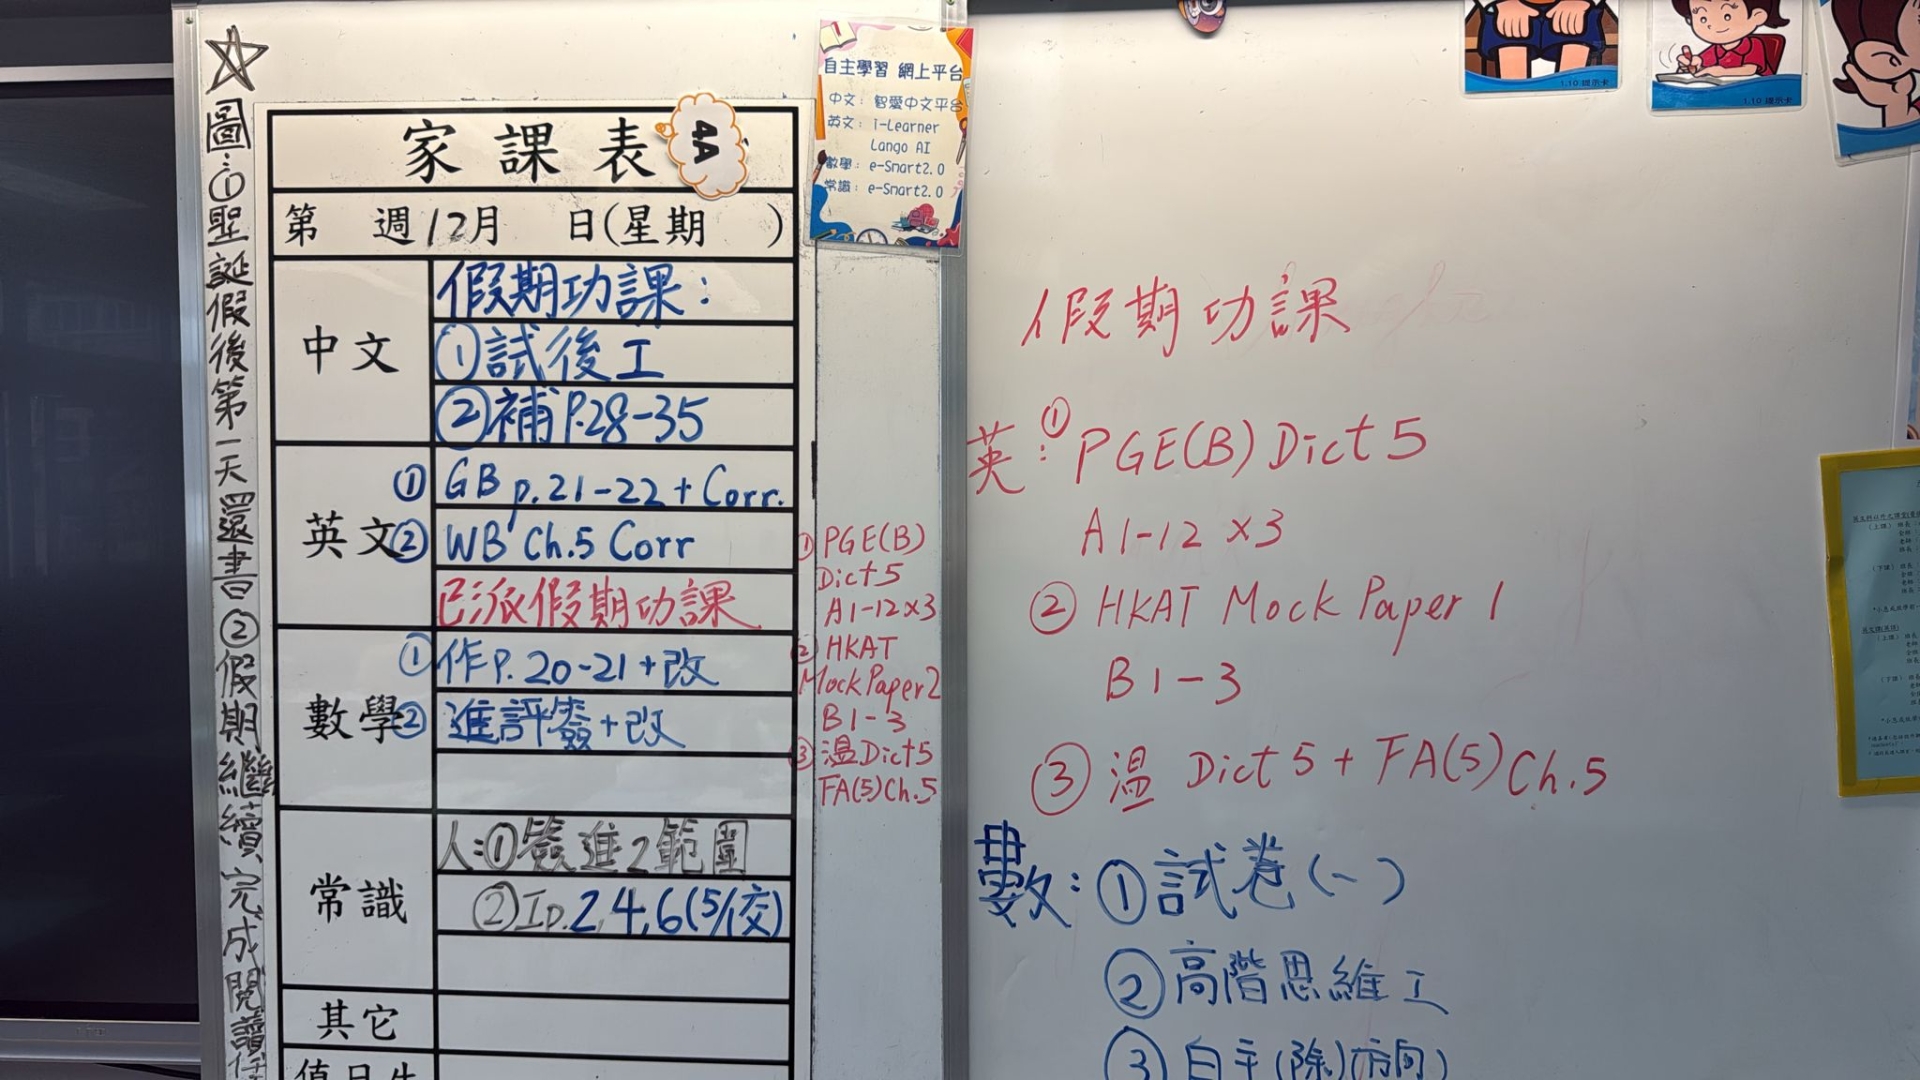 ☆
圖：①聖誕假後第一天還書②假期繼續完成閱讀
家課表
4A
第 週12月 日(星期 )
中文
假期功課：
①試後工
②補P.28-35
英文
① GB p.21-22 + Corr.
② WB Ch.5 Corr
已派假期功課
數學
① 作P.20-21+改
② 進評簽+改
常識
人:①簽進2範圍
②
2,4,6(5/1交)
其它
值日生
① PGE(B)
Dict 5
A1-12×3
② HKAT
Mock Paper 2
B1-3
③ 溫Dict5
FA(5)Ch.5
自主學習 網上平台
中文：智愛中文平台
英文：i-Learner
Lango AI
數學：e-Smart2.0
常識：e-Smart2.0
假期功課
英：① PGE(B) Dict 5
A1-12 ×3
② HKAT Mock Paper 1
B1-3
③ 溫 Dict 5 + FA(5) Ch.5
數：①試卷(一)
②高階思維工
③自主(除)(方向)
1.10 提示卡
1.10 提示卡